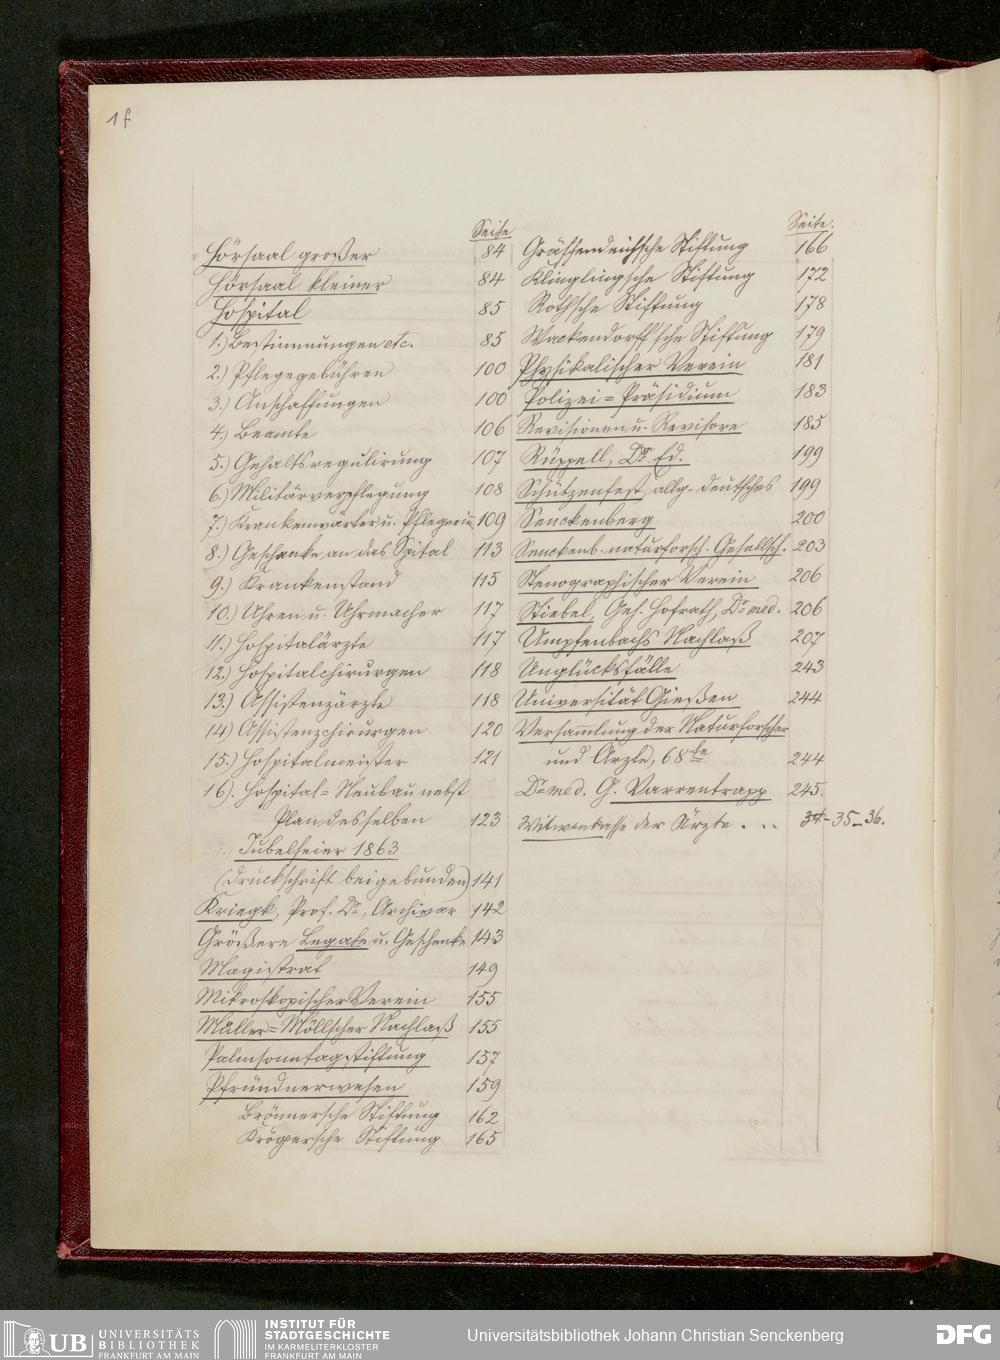 1f
Seite
Hörsaal großer 84
Hörsaal kleiner 84
Hospital 85
1.) Bestimmungen etc. 85
2.) Pflegegebühren 100
3.) Anschaffungen 100
4.) Beamte 106
5.) Gehaltsregulirung 107
6.) Militärverpflegung 108
7.) Krankenwärter u. Pflegerin. 109
8.) Geschenke an das Spital 113
9.) Krankenstand 115
10.) Uhren u. Uhrmacher 117
11.) Hospitalärzte 117
12.) Hospitalchirurgen 118
13.) Assistenzärzte 118
14) Assistenzchirurgen 120
15.) Hospitalmeister 121
16). Hospital=Neubau nebst
Plan desselben 123
Jubelfeier 1863
(Druckschrift beigebunden) 141
Kriegk, Prof. Dr., Archivar 142
Größere Legate u. Geschenke 143
Magistrat 149
Mikroskopischer Verein 155
Müller=Möllscher Nachlaß 155
Palmsonntagstiftung 157
Pfründnerwesen 159
Brönnersche Stiftung 162
Krögersche Stiftung 165
Seite.
Stiftung 166
Klinglingsche Stiftung 172
Rothsche Stiftung 178
Wackendorffsche Stiftung 179
Physikalischer Verein 181
Polizei=Präsidium 183
Revisionen u. Revisore 185
Rüppell, Dr. Ed. 199
Schützenfest, allg. deutsches 199
Senckenberg 200
Senckenb. naturforsch. Gesellsch. 203
Stenographischer Verein 206
Stiebel, Geh. Hofrath, Dr. med. 206
Umpfenbachs Nachlaß 207
Unglücksfälle 243
Universität Gießen 244
Versammlung der Naturforscher
und Ärzte, 68te 244
Dr. med. G. Varrentrapp 245.
Witwenkasse der Ärzte . . . 34-35-36.
UB UNIVERSITÄTS
BIBLIOTHEK
FRANKFURT AM MAIN
INSTITUT FÜR
STADTGESCHICHTE
IM KARMELITERKLOSTER
FRANKFURT AM MAIN
Universitätsbibliothek Johann Christian Senckenberg
DFG